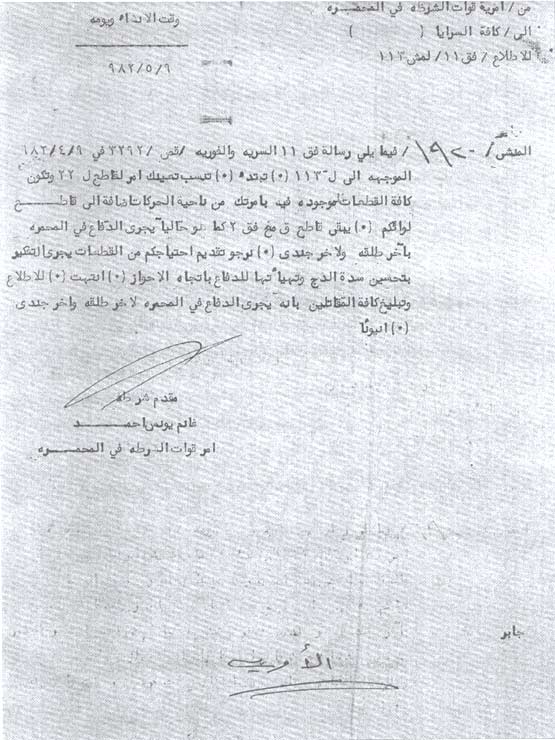 من / امرية قوات الشرطه في المحمـــره
الى / كافة السرايا (            )
للاطلاع / فق ١١ / لمش ١١٣
وقت الانداء ويومه
٩٨٢/٥/٩
العدد / ١٩٢٠ / فيما يلي رسالة فق ١١ السريه والفوريه / قص / ٣٢٩٢ في ٩٨٢/٤/٩
الموجهه الى ل ١١٣ (٠) تبتدء (٠) تنسب تعينك امر لقاطع ل ٢٢ وتكون
كافة القطعات الموجوده فيه بامرتك من ناحية الحركات اضافة الى قاطـــع
لوائكم (٠) يبقى قاطع ق مع فق ٢ كما هو حاليا يجرى الدفاع في المحمره
بآخر طلقه ولاخر جندى (٠) نرجو تقديم احتياجكم من القطعات يجرى التفكير
بتحسين سدة الدج وتهيأتها للدفاع باتجاه الاحواز (٠) انتهت (٠) للاطلاع
وتبليغ كافة المقاتلين بانه يجرى الدفاع في المحمره لاخر طلقه واخر جندى
(٠) انبونا
مقدم شرطه
غانم يونس احمـــد
امر قوات الشرطه في المحمـــره
جابر